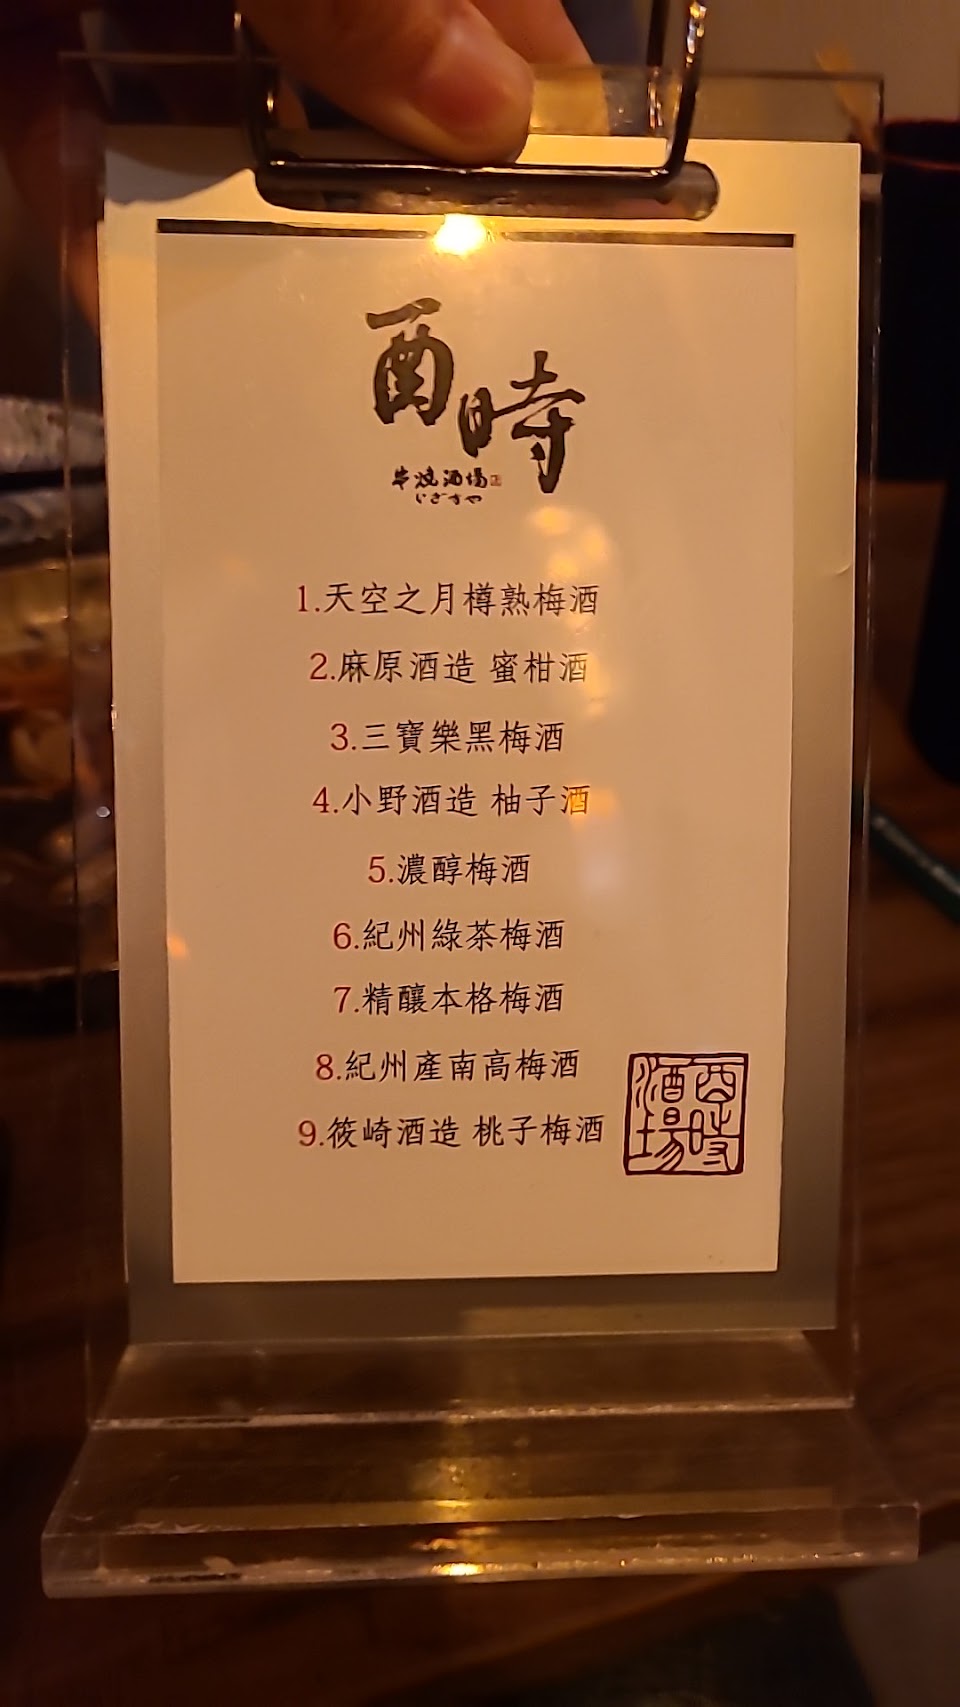 酉時
串燒酒場
いざかや
1.天空之月樽熟梅酒
2.麻原酒造 蜜柑酒
3.三寶樂黑梅酒
4.小野酒造 柚子酒
5.濃醇梅酒
6.紀州綠茶梅酒
7.精釀本格梅酒
8.紀州產南高梅酒
9.筱崎酒造 桃子梅酒
酉時
酒場